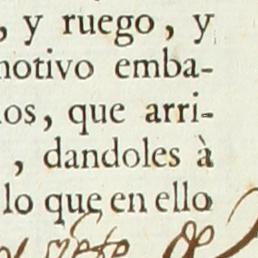 , y ruego, y
motivo emba-
os, que arri-
, dandoles à
lo que en ello